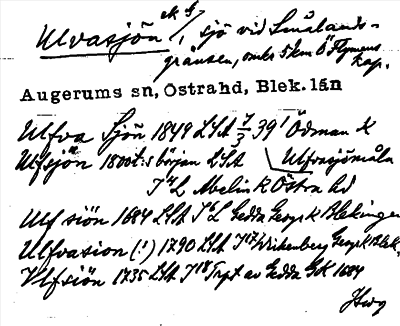 Ulvasjön ek f/, sjö vid Smålands-
gränsen, omkr 5 km Ö Flymens
kap.
Augerums sn, Östra hd, Blek. län
Ulfva Sjön 1849 LSA 39 Ödman K
Ulfsjön 1800t:s början LSA Ulfvasjömåla
Melin K Östra hd
Ulf siön 1684 LSA Gedda Geogr K Blekingen
Ulfvasion (!) 1790 LSA Wirkenberg Geogr K Blek.
Ulfsiön 1735 LSA Trpt av Gedda GK 1684